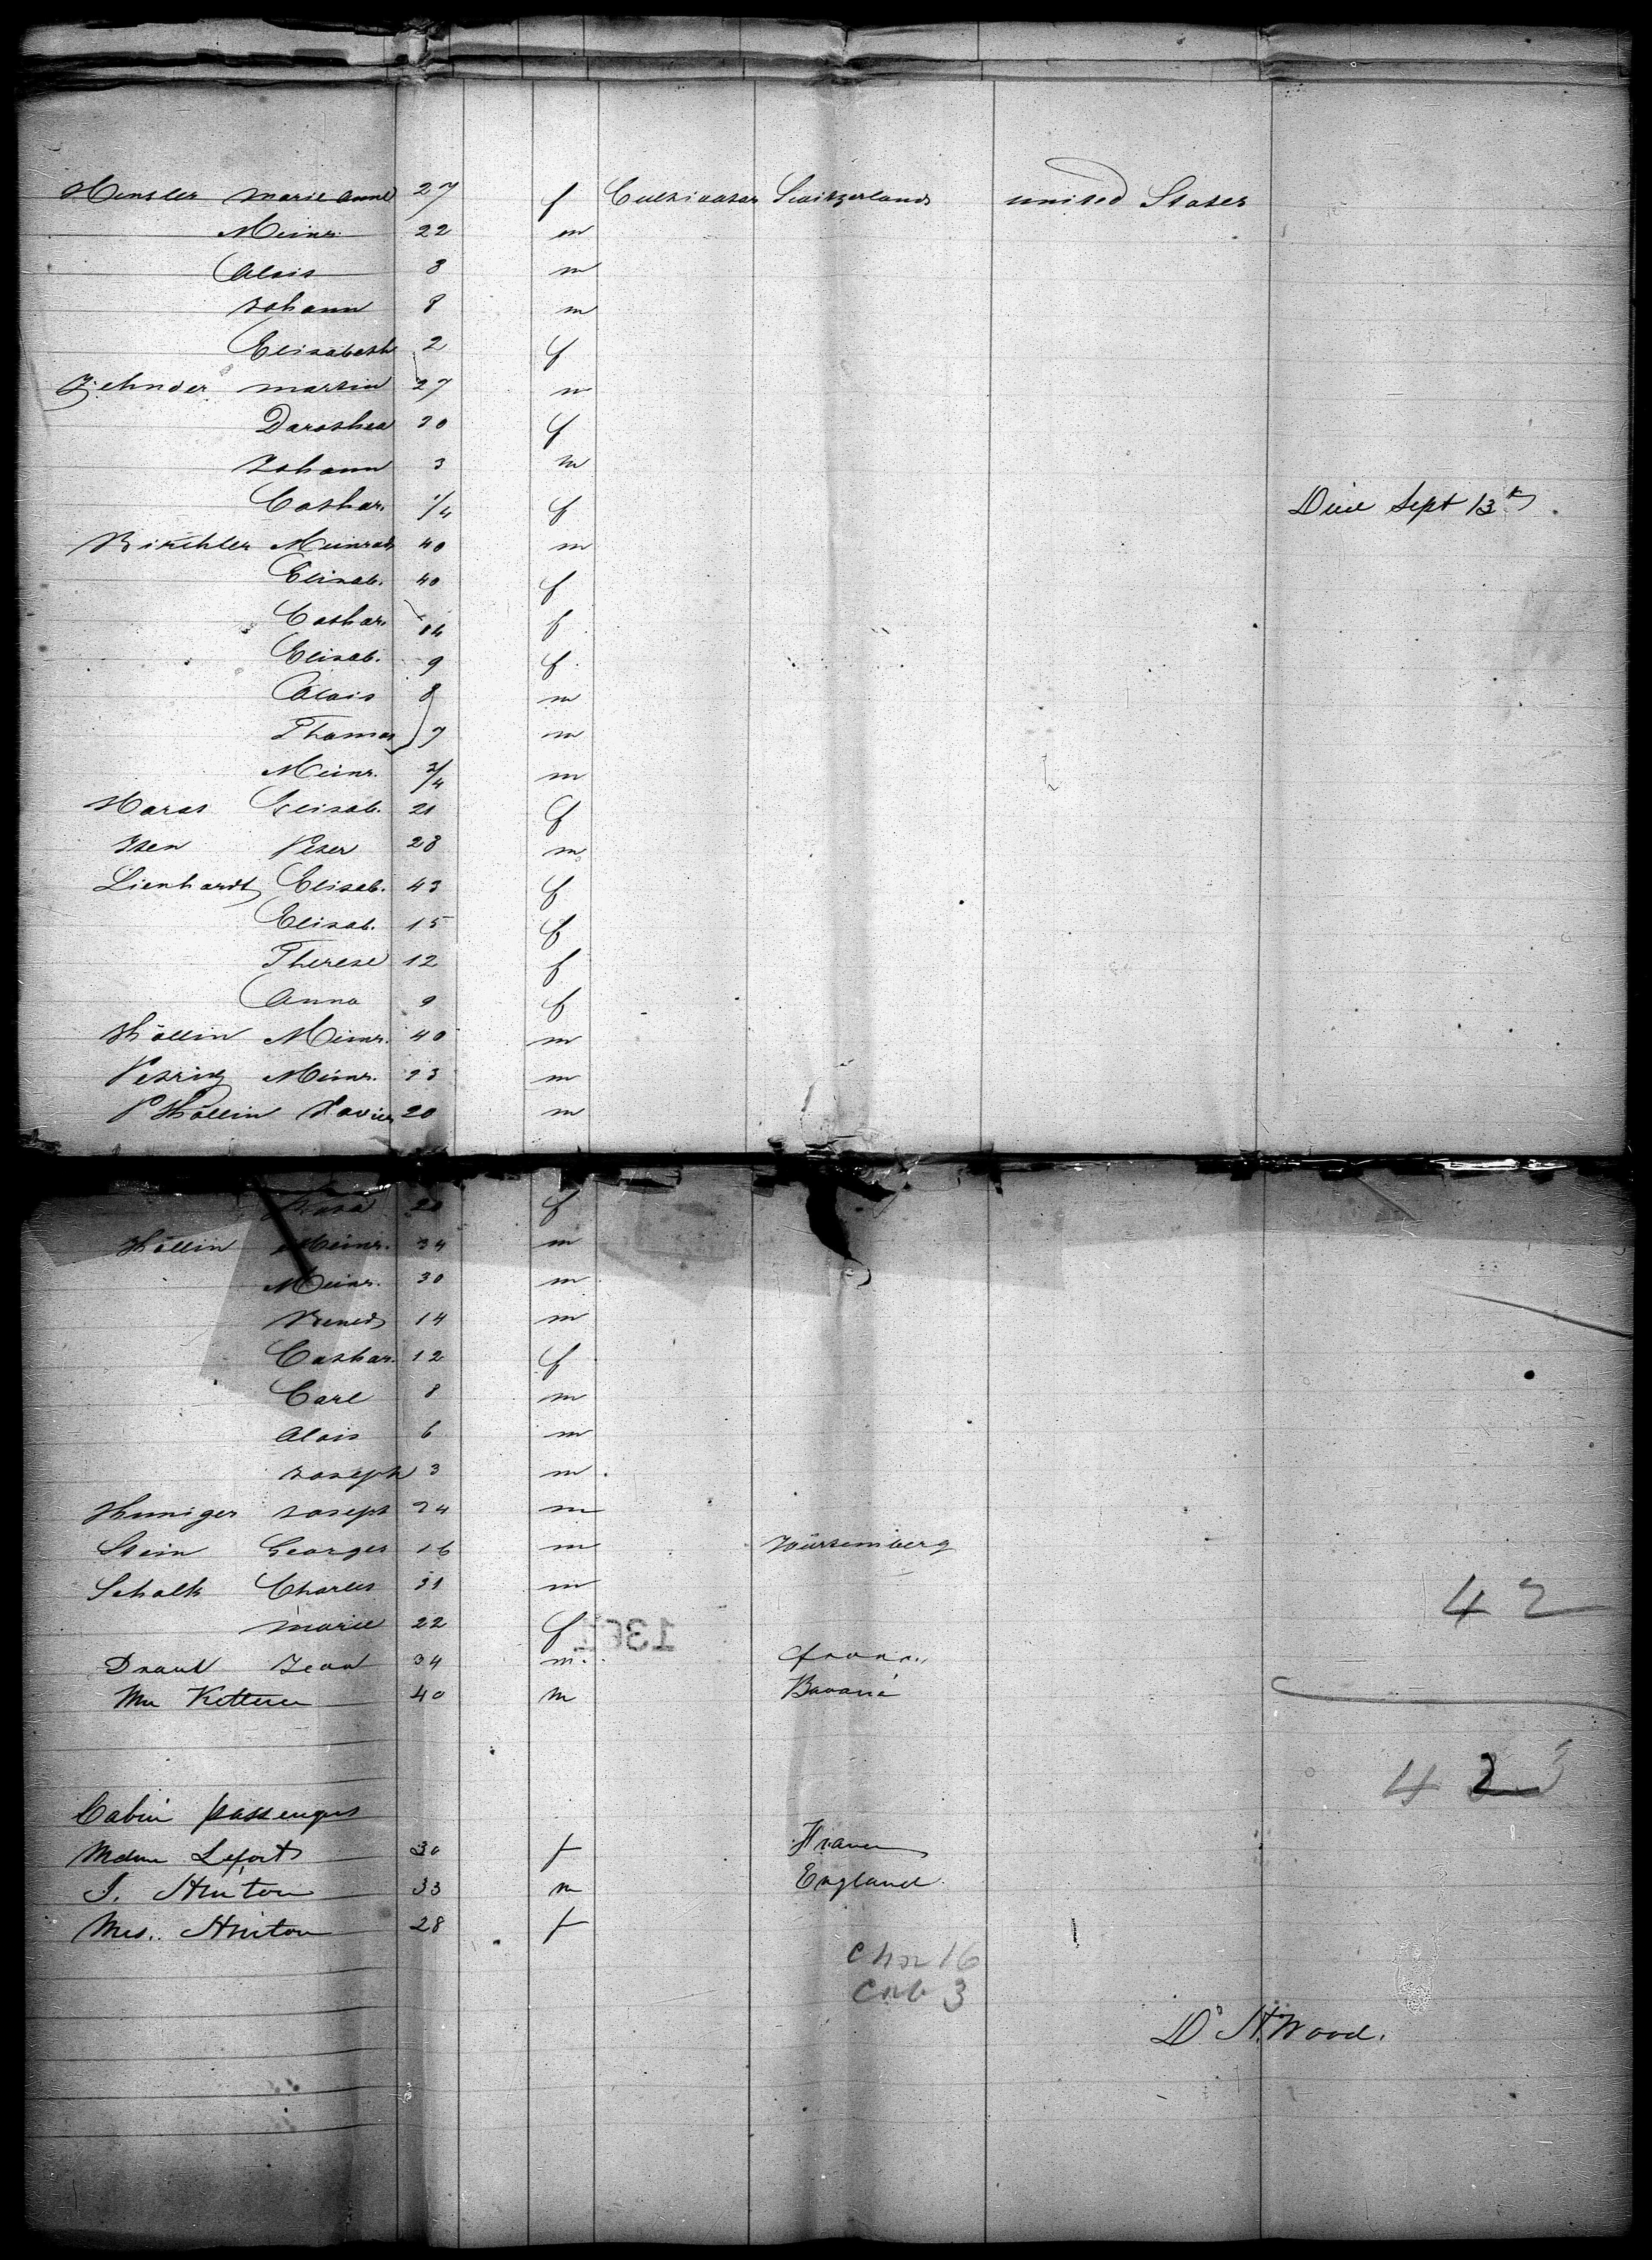 Hensler Marie Anne 27 f Cultivator Switzerland United States
Meinr. 22 m
Alois 3 m
Johann 8 m
Elisabeth 2 f
Zehnder Martin 27 m
Darothea 30 f
Johann 3 m
Cathar. 1/4 f Died Sept 13th
Birchler Meinrad 40 m
Elisab. 40 f
Cathar. 14 f
Elisab. 9 f
Alois 8 m
Thomas 7 m
Meinr. 3/4 m
Elisab. 21 f
Peter 28 m
Lienhardt Elisab. 43 f
Elisab. 15 f
Therese 12 f
Anna 9 f
Källin Meinr. 40 m
Petrig Meinr. 23 m
Källin Xavier 20 m
Rosa 20 f
Källin Meinr. 34 m
Meinr. 30 m
Bened 14 m
Cathar. 12 f
Carl 8 m
Alois 6 m
Joseph 3 m
Joseph 24 m
Stein Georges 16 m Würtemberg
Schalk Charles 31 m
Marie 22 f
Jean 34 m. France
Mr Ketterer 40 m Bavaria
42
Cabin passengers
Mdme Lefort 30 f France
J. Hinton 33 m England
Mrs. Hinton 28 f
16
Cab 3
Dr H. Wood.